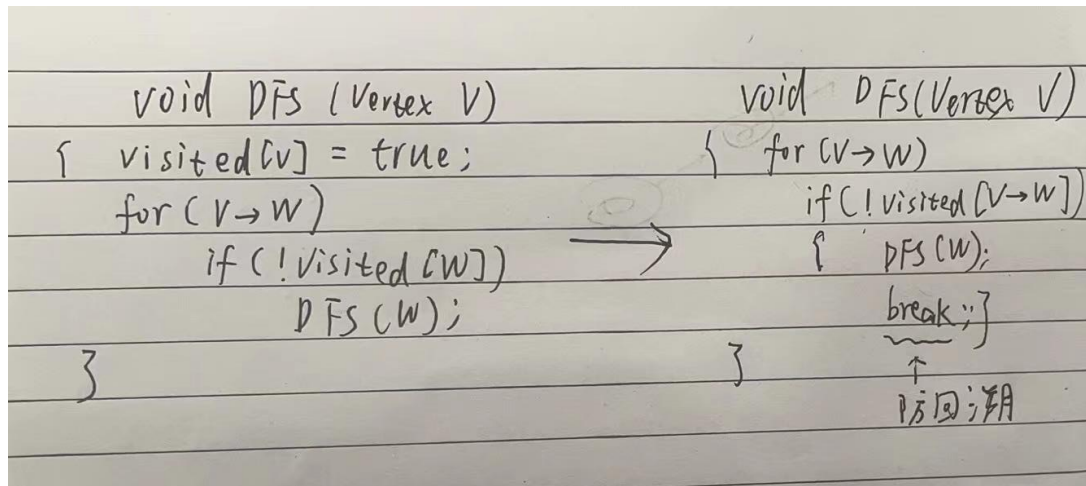 void DFS (Vertex V)
{ visited[v] = true;
for (V→W)
if (!visited[W])
DFS(W);
}
→
void DFS(Vertex V)
{ for (V→W)
if (!visited[V→W])
{ DFS(W);
break;}
}
↑
防回溯